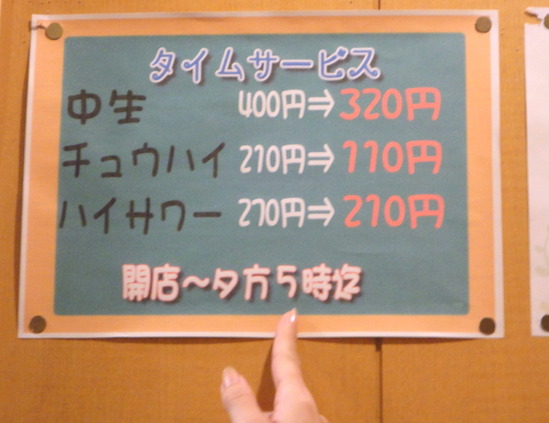 タイムサービス
中生 400円⇒320円
チュウハイ 210円⇒110円
ハイサワー 270円⇒210円
開店～夕方5時迄